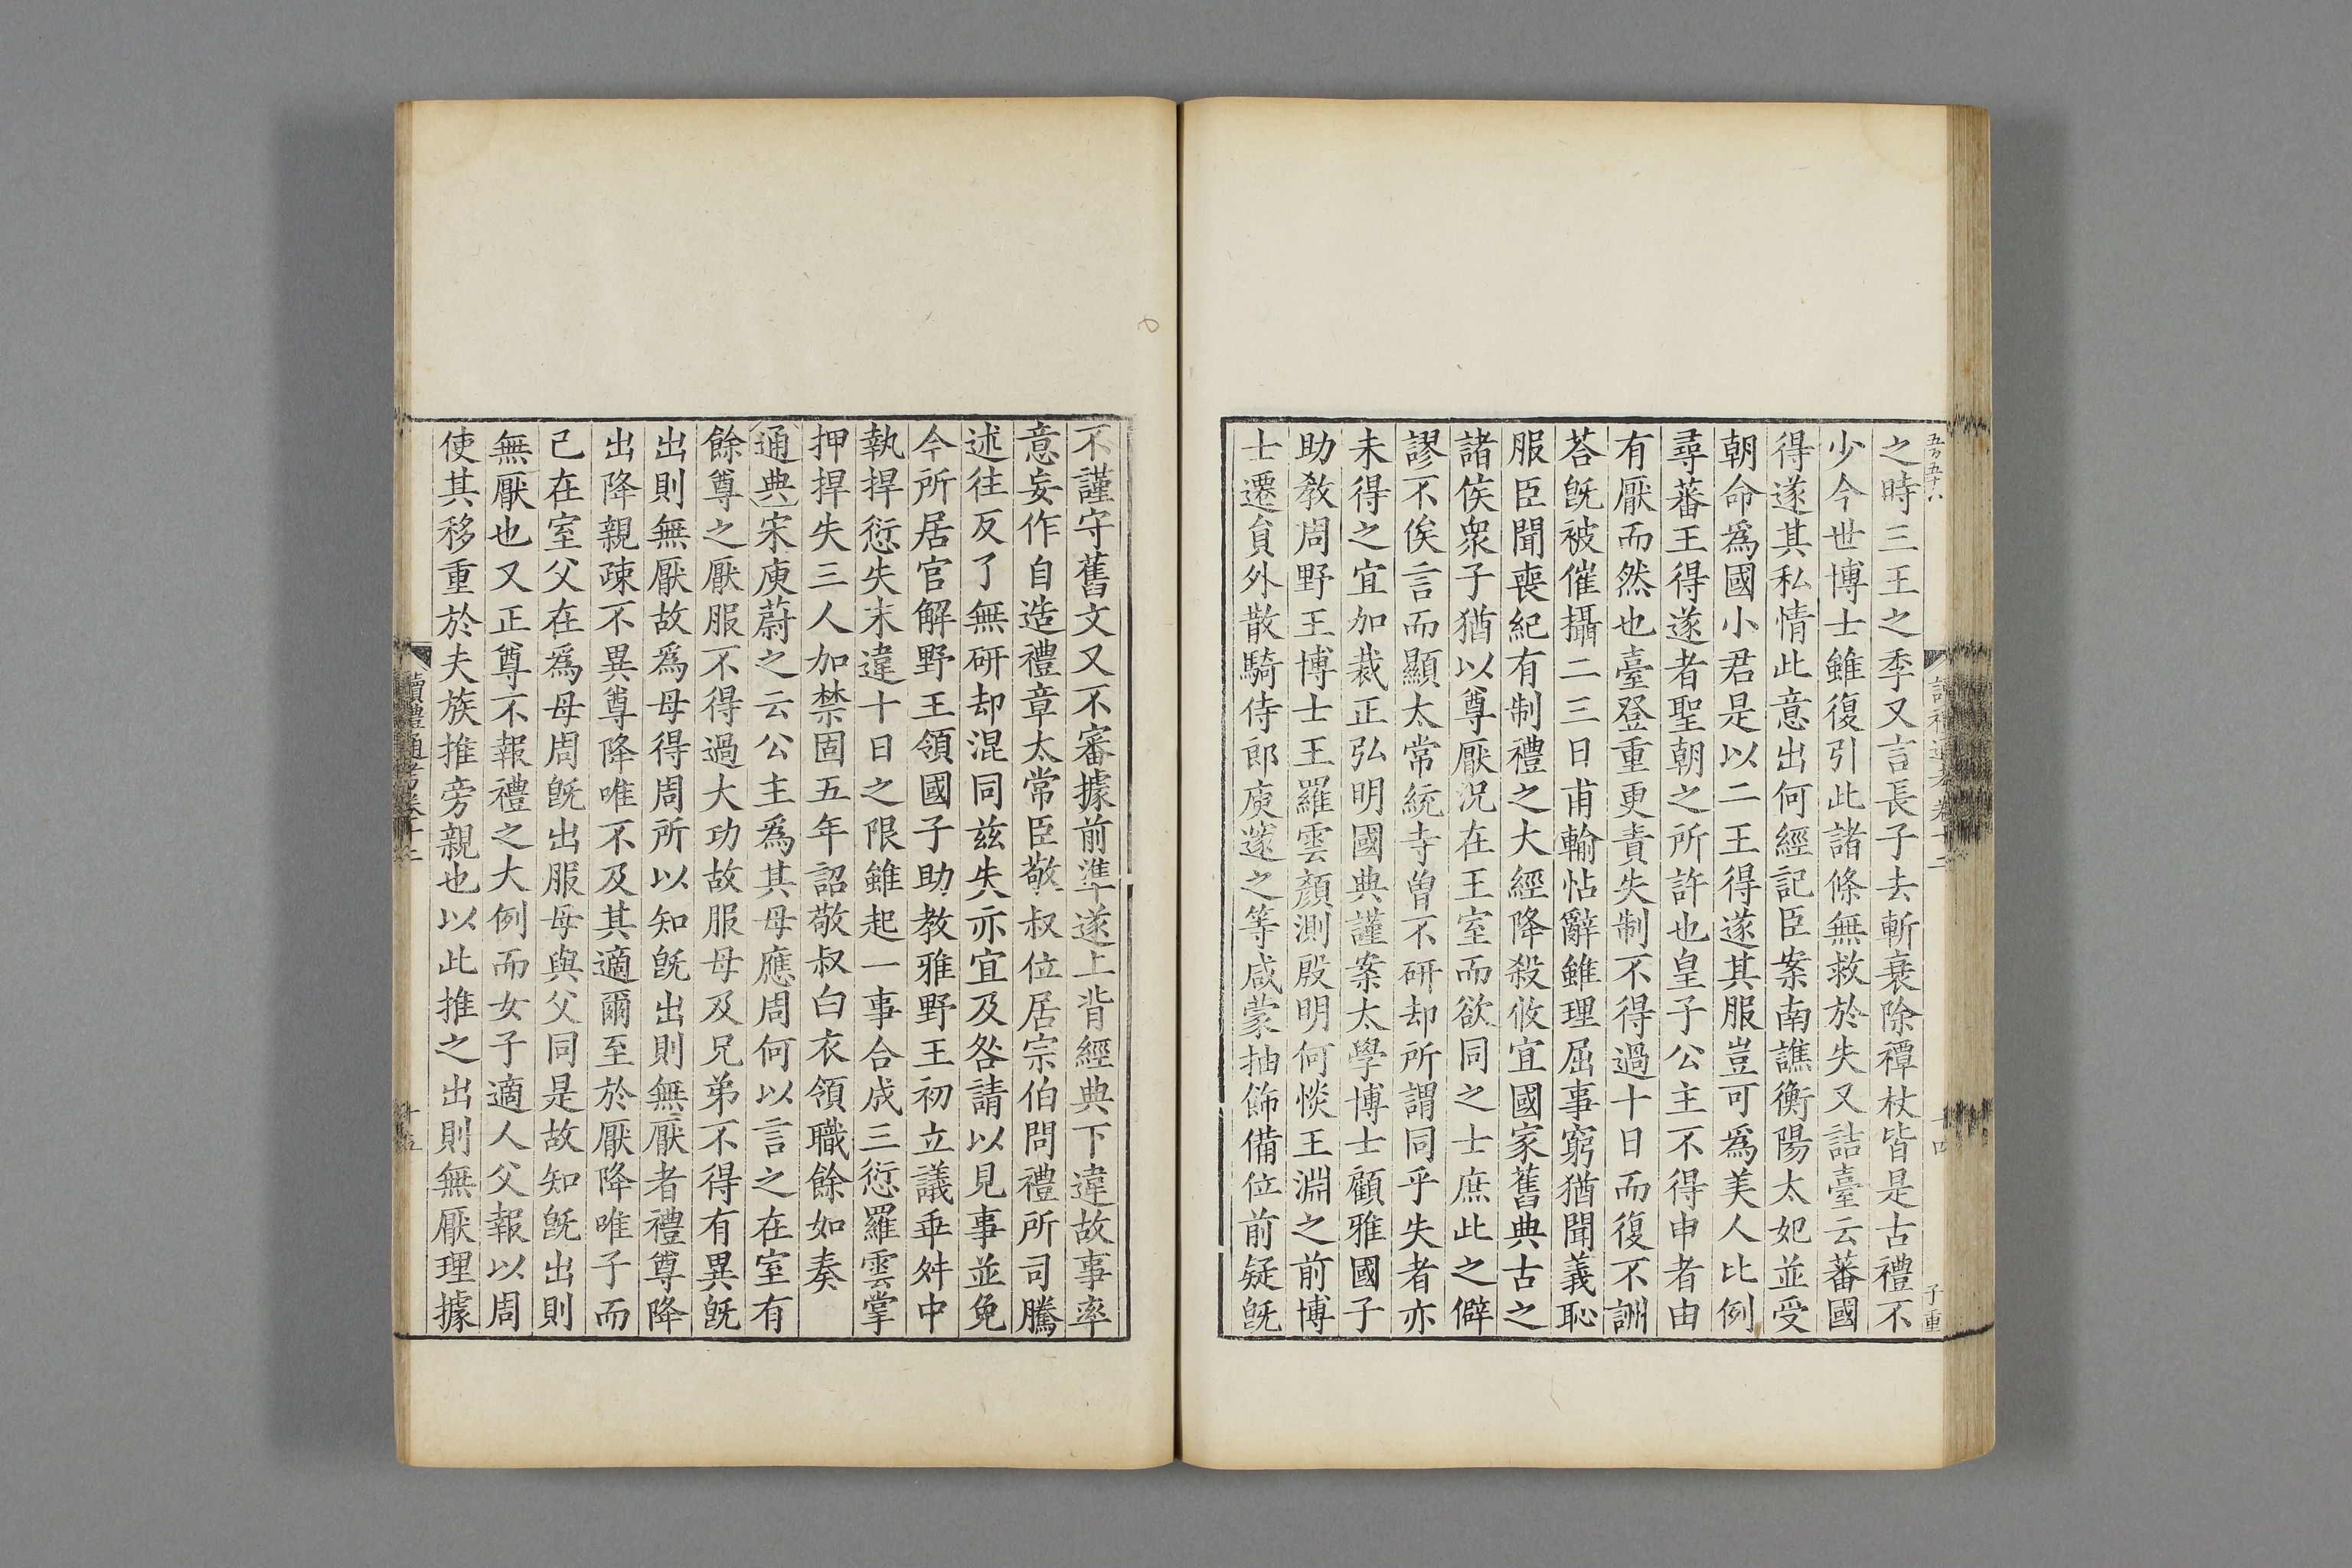 之時三王之季又言長子去斬衰除禫杖皆是古禮不
少今世博士雖復引此諸條無救於失又詰臺云蕃國
得遂其私情此意出何經記臣案南譙衡陽太妃並受
朝命爲國小君是以二王得遂其服豈可爲美人比例
尋蕃王得遂者聖朝之所許也皇子公主不得申者由
有厭而然也臺登重更責失制不得過十日而復不詶
荅旣被催攝二三日甫輸帖辭雖理屈事窮猶聞義恥
服臣聞喪紀有制禮之大經降殺攸宜國家舊典古之
諸侯衆子猶以尊厭況在王室而欲同之士庶此之僻
謬不俟言而顯太常統寺曾不研却所謂同乎失者亦
未得之宜加裁正弘明國典謹案太學博士顧雅國子
助教周野王博士王羅雲顏測殷明何惔王淵之前博
士遷員外散騎侍郎庾邃之等咸蒙抽飾備位前疑旣
不謹守舊文又不審據前準遂上背經典下違故事率
意妄作自造禮章太常臣敬叔位居宗伯問禮所司騰
述往反了無研却混同茲失亦宜及咎請以見事並免
今所居官解野王領國子助教雅野王初立議乖舛中
執捍愆失未違十日之限雖起一事合成三愆羅雲掌
押捍失三人加禁固五年詔敬叔白衣領職餘如奏
通典宋庾蔚之云公主爲其母應周何以言之在室有
餘尊之厭服不得過大功故服母及兄弟不得有異旣
出則無厭故爲母得周所以知旣出則無厭者禮尊降
出降親疎不異尊降唯不及其適爾至於厭降唯子而
已在室父在爲母周旣出服母與父同是故知旣出則
無厭也又正尊不報禮之大例而女子適人父報以周
使其移重於夫族推旁親也以此推之出則無厭理據
讀禮通考卷十二
十五